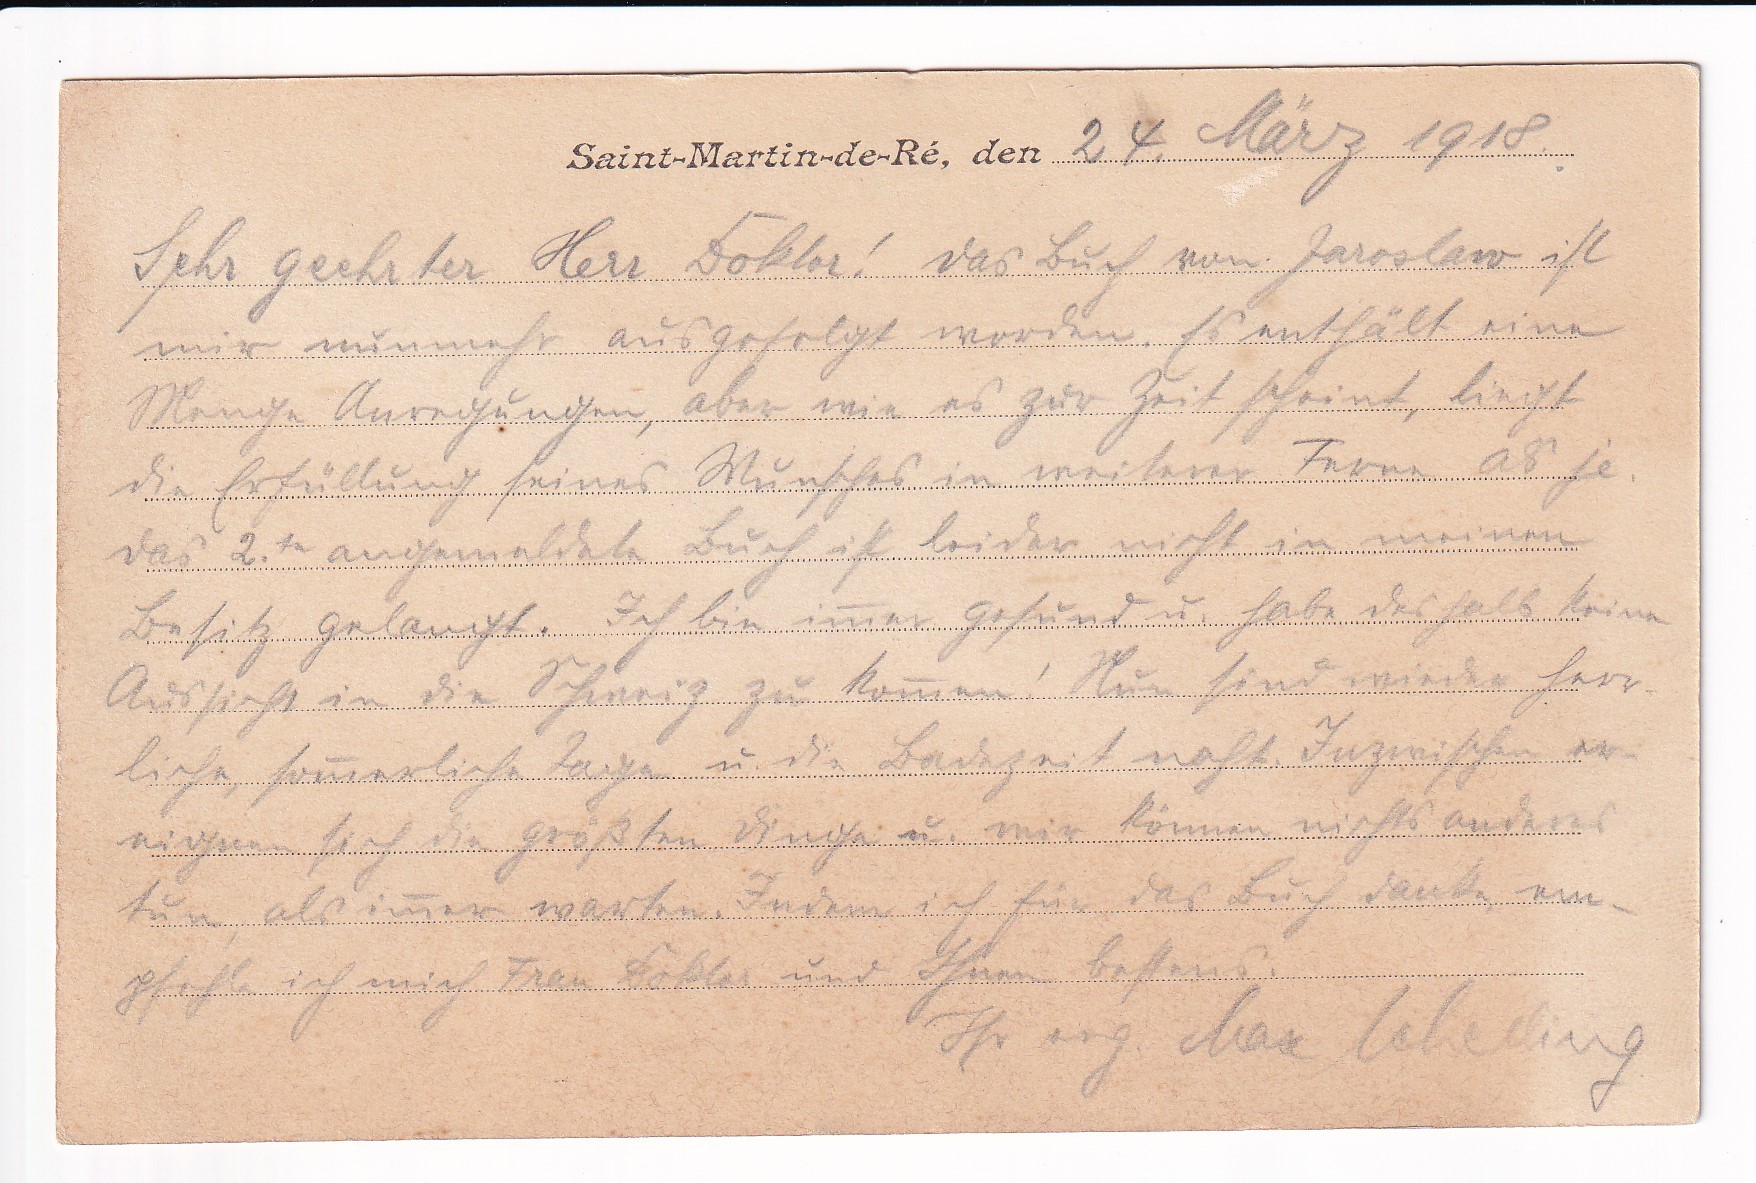 Saint-Martin-de-Ré, den 24. März 1918.
Sehr geehrter Herr Doktor! Das Buch von Jaroslaw ist
mir nunmehr ausgefolgt worden. Es enthält eine
Menge Anregungen, aber wie es zur Zeit scheint, liegt
die Erfüllung seines Wunsches in weiterer Ferne als je.
Das 2.te angemeldete Buch ist leider nicht in meinen
Besitz gelangt. Ich bin im̄er gesund u. habe deshalb keine
Aussicht in die Schweiz zu kom̄en! Nun sind wieder herr-
liche, som̄erliche Tage u. die Badezeit naht. Inzwischen er-
eignen sich die größten Dinge u. wir können nichts anderes
tun, als im̄er warten. Indem ich für das Buch danke, em-
pfehle ich mich Frau Doktor und Ihnen bestens.
Ihr erg. Max Schelling